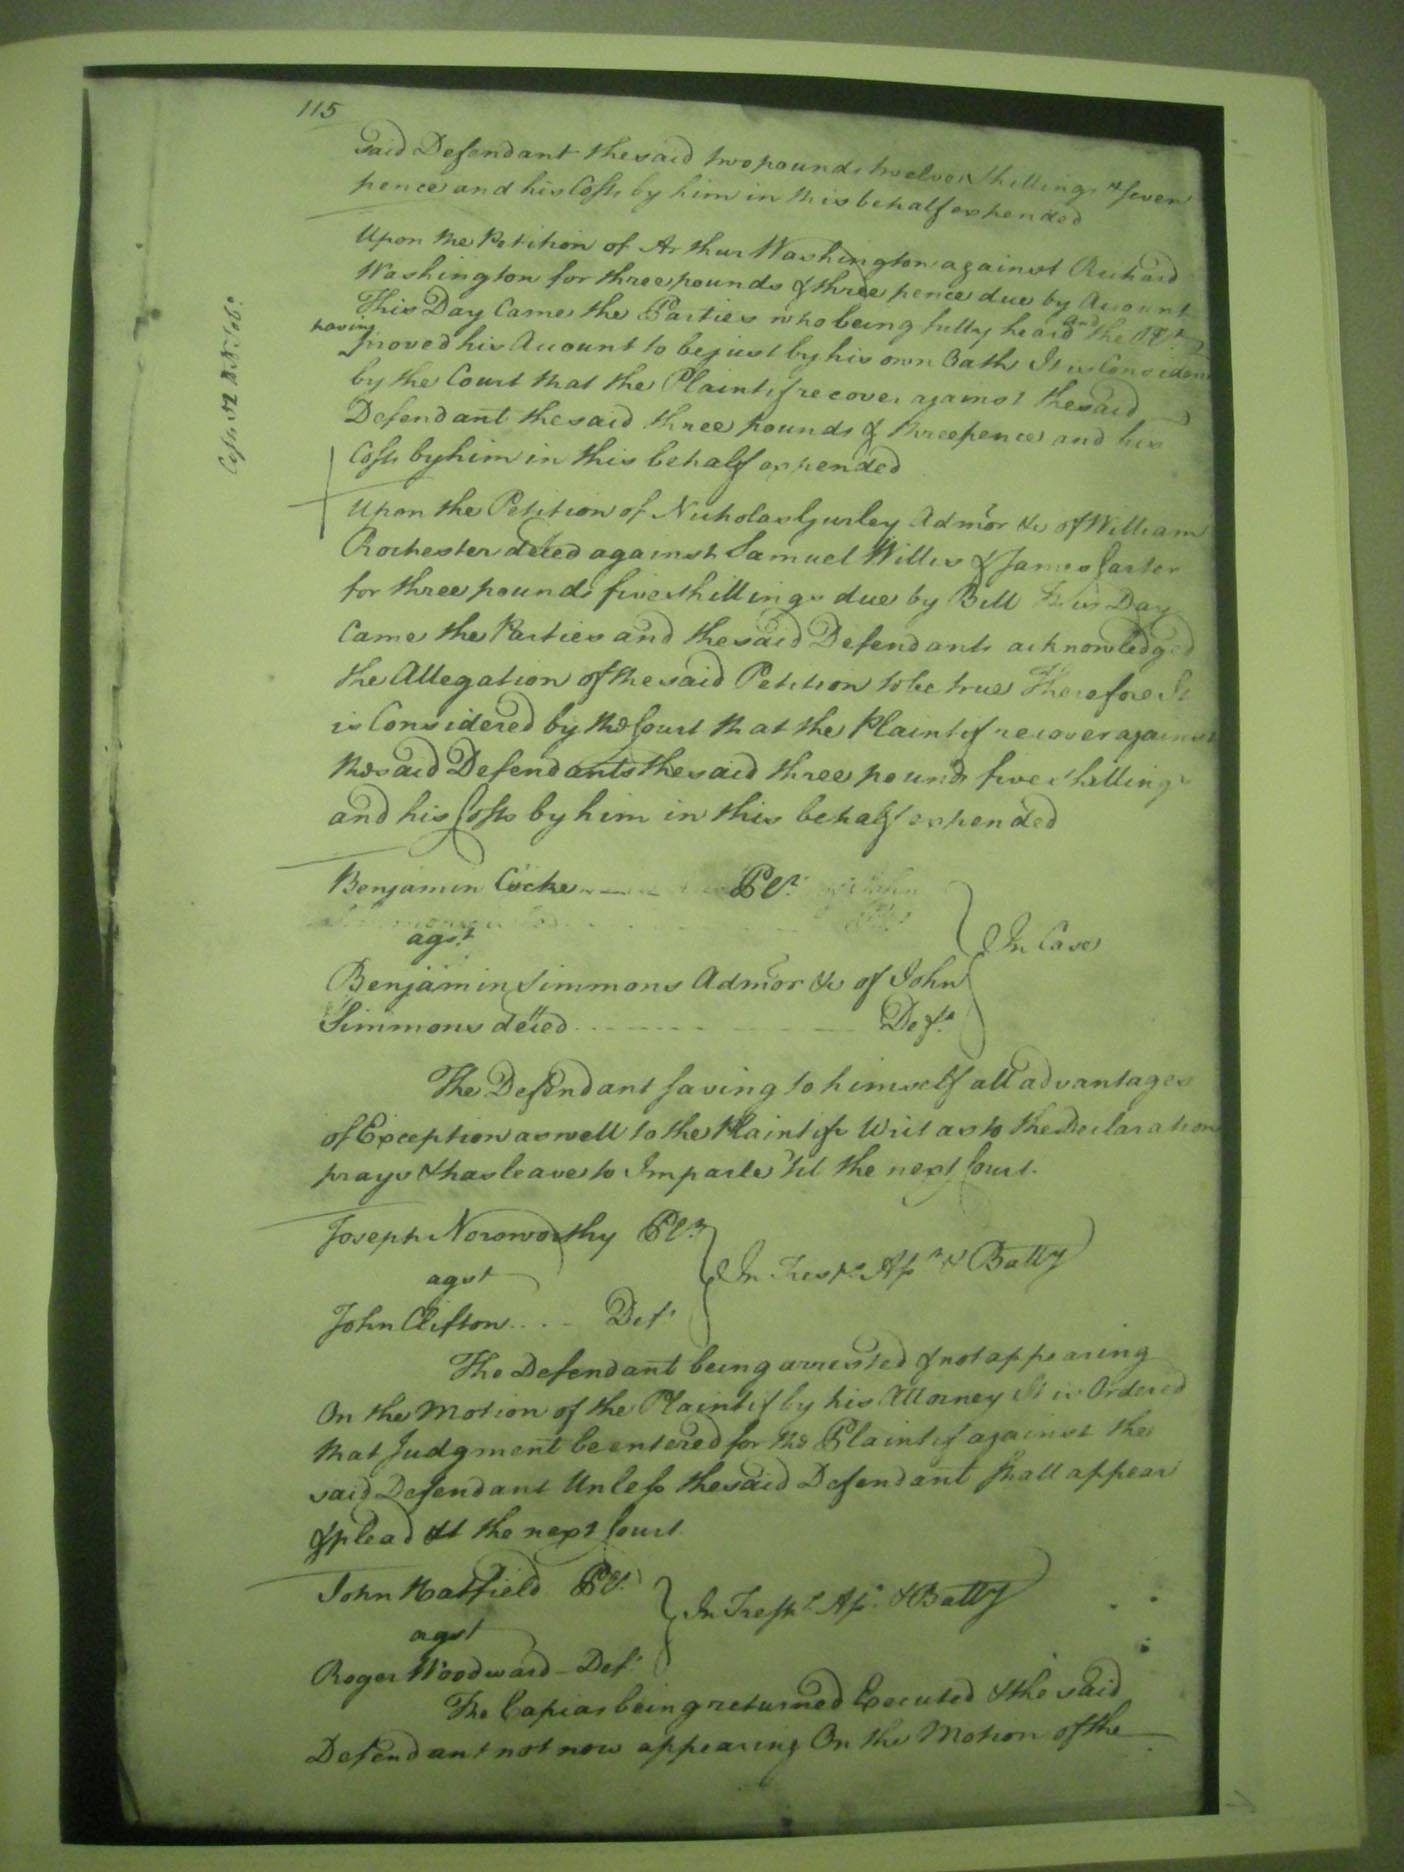 115
said Defendant the said two pounds twelve Shillings & seven
pence and his Costs by him in this behalf expended
Upon the Petition of Arthur Washington against Richard
Washington for three pounds & three pence due by Account
This Day Came the Parties who being fully heard and the Plt.
having proved his Account to be just by his own Oath It is Considered
by the Court that the Plaintif recover against the said
Defendant the said three pounds & threepence and his
Costs by him in this behalf expended
Upon the Petition of Nicholas Gurley Admor &c of William
Rochester deced against Samuel Willis & James Carter
for three pounds five shillings due by Bill This Day
Came the Parties and the said Defendants acknowledged
the Allegation of the said Petition to be true Therefore It
is Considered by the Court that the Plaintif recover against
the said Defendants the said three pounds five shillings
and his Costs by him in this behalf expended
Benjamin Cocke Plt.
agst.
In Case
Benjamin Simmons Admor &c of John
Simmons deced Deft.
The Defendant saving to himself all advantages
of Exception as well to the Plaintifs Writ as to the Declaration
prays & has leave to Imparle 'til the next Court.
Joseph Norsworthy Plt.
agst
In Tresps. Asst. & Battry
John Clifton Deft
The Defendant being arrested & not appearing
On the Motion of the Plaintif by his Attorney It is Ordered
that Judgment be entered for the Plaintif against the
said Defendant Unless the said Defendant shall appear
& plead at the next Court
John Hatfield Plt.
agst
In Tresps. Asst. & Battry
Roger Woodward Deft
The Capias being returned Executed & the said
Defendant not now appearing On the Motion of the